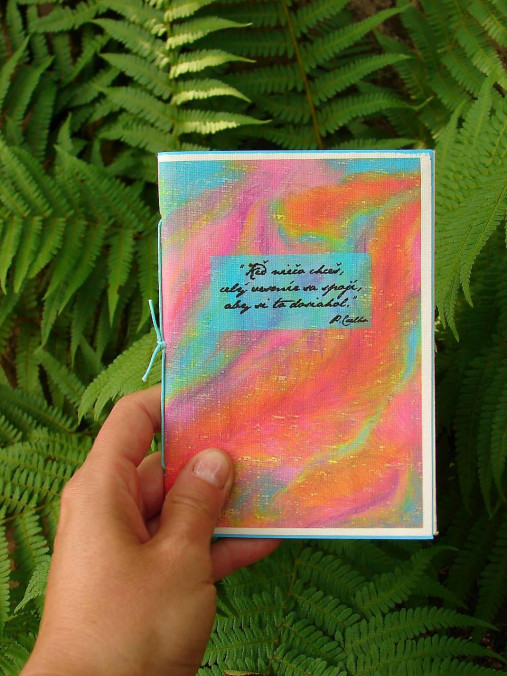 "Keď niečo chceš,
celý vesmír sa spojí,
aby si to dosiahol."
P. Coelho